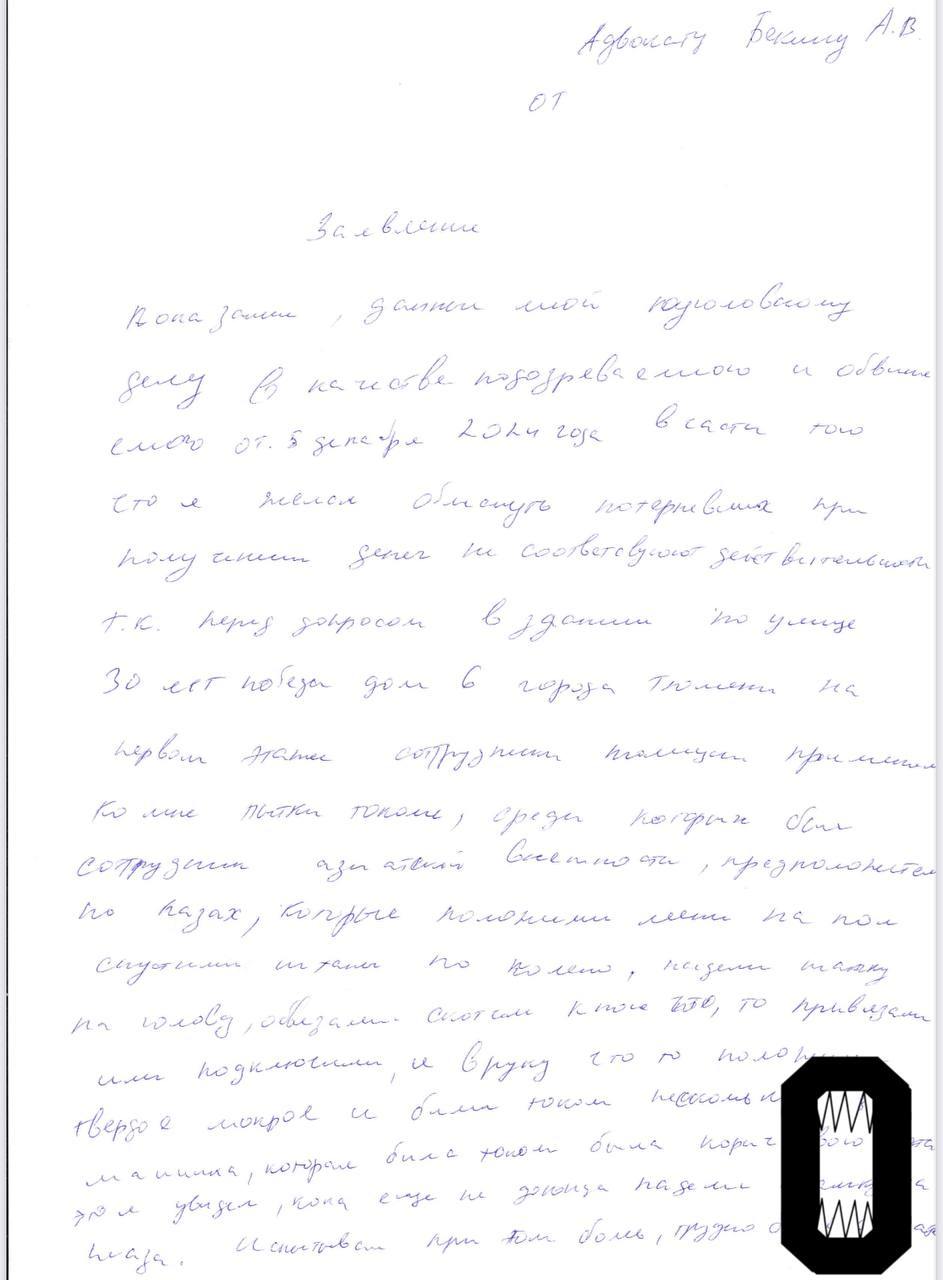 Адвокату Бекину А.В.
от
Заявление
Показания, данные мной по уголовному
делу в качестве подозреваемого и обвиня
емого от 5 декабря 2024 года в части того
что я желал обмануть потерпевших при
получении денег не соответсвуют действительности
т.к. перед допросом в здании по улице
30 лет победы дом 6 города Тюмени на
первом этаже сотрудники полиции применяли
ко мне пытки током, среди которых был
сотрудник азиатской внешности, предположител
но казах, которые положили меня на пол
спустили штаны по колено, надели шапку
на голову, обвязали скотчем к ноге что, то привязали
или подключили, и в руку что то положили
твердое мокрое и били током несколь
машинка, которая била током была корич
это я увидел, кога еще не доконца надели
глаза. Испытывал при том боль, трудно